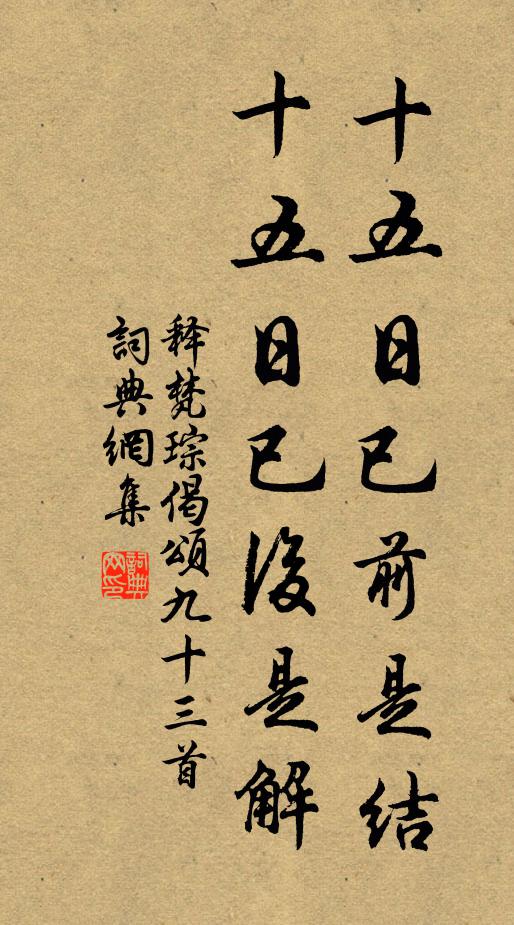 十五日已前是結
十五日已後是解
釋梵琮偈頌九十三首
詞典網集
詞典網印